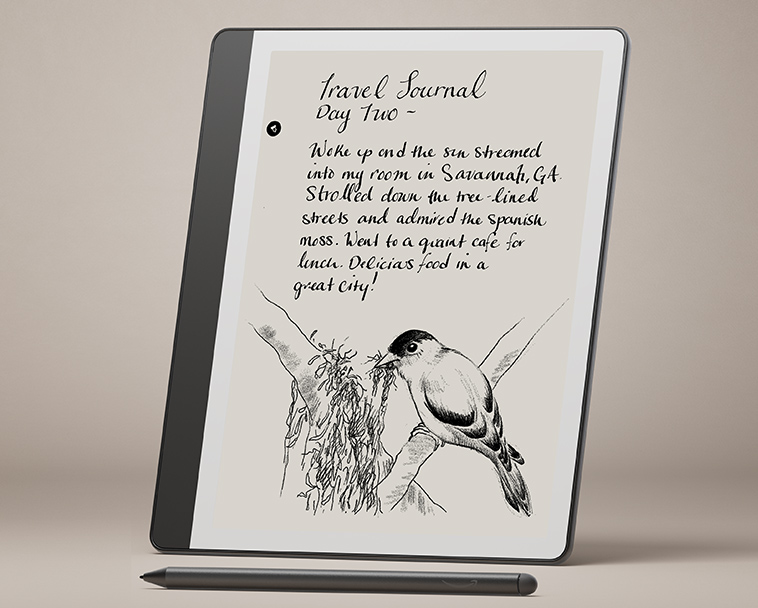 Travel Journal
Day Two ~
Woke up and the sun streamed
into my room in Savannah, GA.
Strolled down the tree-lined
streets and admired the Spanish
moss. Went to a quaint cafe for
lunch. Delicious food in a
great city!